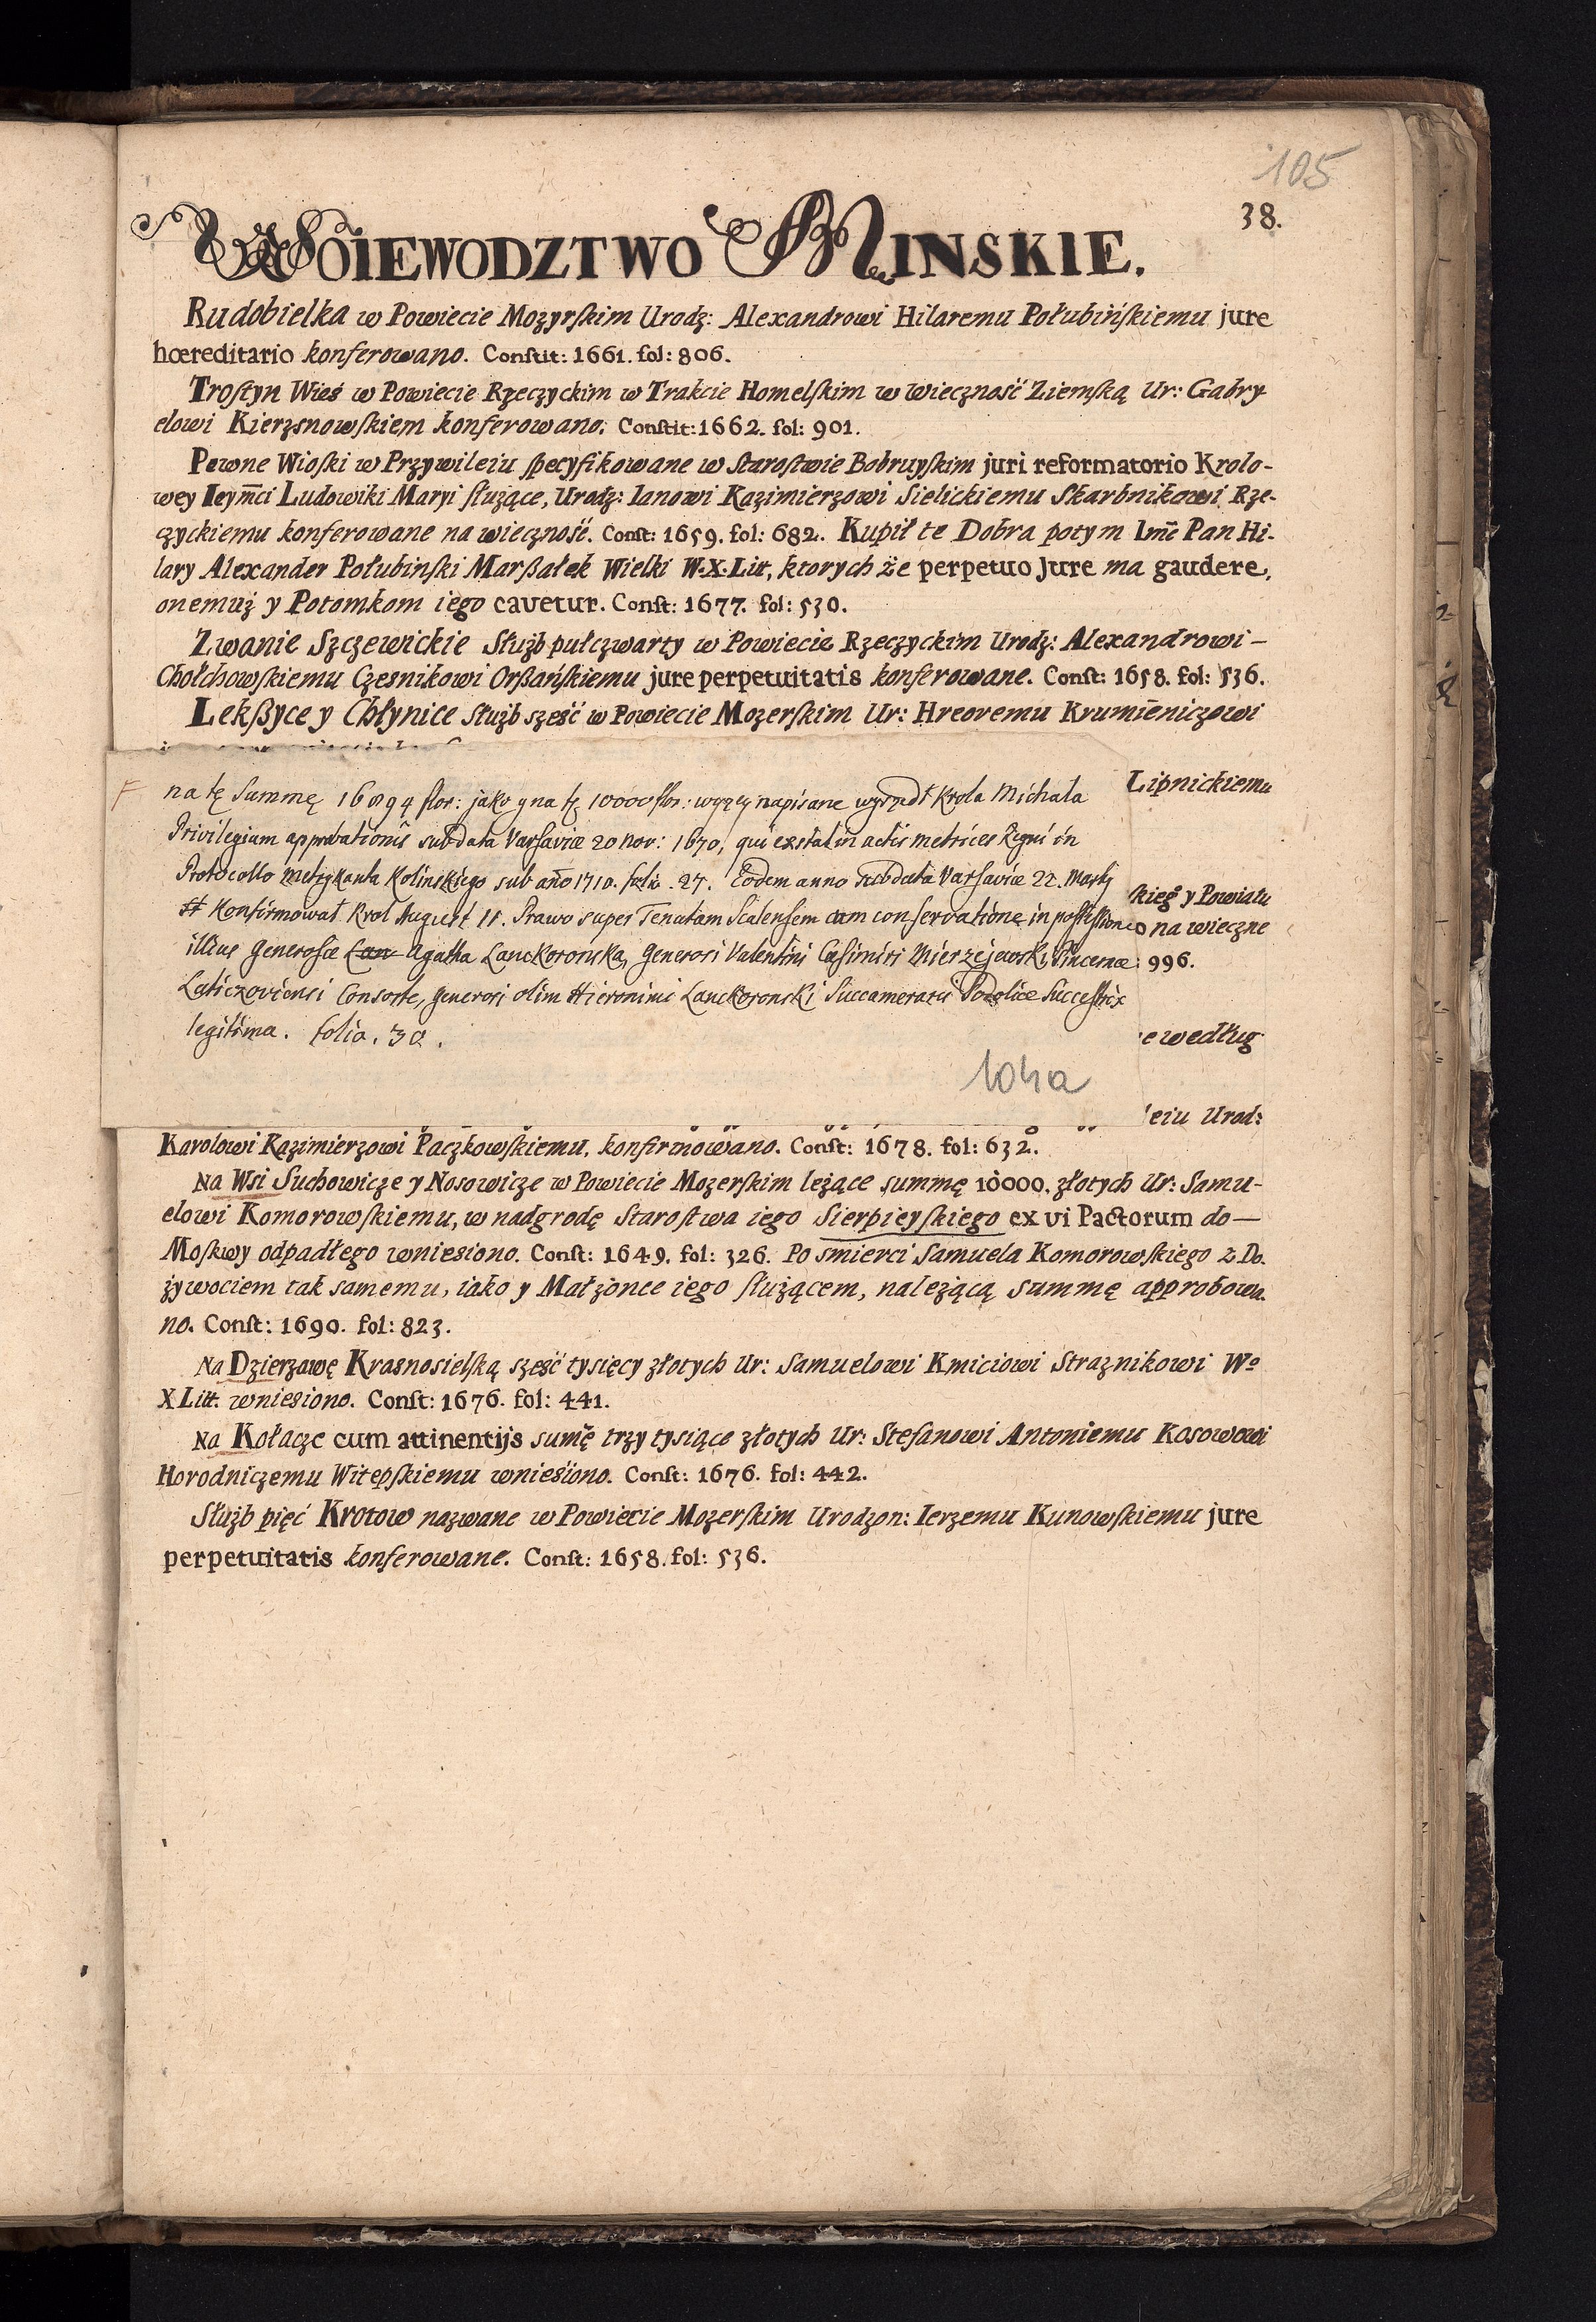 105
38.
WOIEWODZTWO MINSKIE.
Rudobielka w Powiecie Mozyrskim Urodz: Alexandrowi Hilaremu Połubińskiemu jure
hœreditario konferowano. Constit: 1661. fol: 806.
Trostyn Wieś w Powiecie Rzeczyckim w Trakcie Homelskim w Wieczność Ziemską Ur: Gabry
elowi Kierzsnowskiem konferowano. Constit: 1662. fol: 901.
Pewne Wioski w Przywileiu specyfikowane w Starostwie Bobruyskim juri reformatorio Krolo-
wey Ieym̃ci Ludowiki Maryi służące, Urodz: Ianowi Kazimierzowi Sielickiemu Skarbnikowi Rze-
czyckiemu konferowane na wieczność. Const: 1659. fol: 682. Kupił te Dobra potym Im̃c Pan Hi-
lary Alexander Połubinski Marßałek Wielki W.X.Litt, ktorych że perpetuo Jure ma gaudere,
onemuż y Potomkom iego cavetur. Const: 1677. fol: 530.
Zwanie Szczewickie Służb pułczwarty w Powiecie Rzeczyckim Urodz: Alexandrowi –
Chołchowskiemu Czesnikowi Orßańskiemu jure perpetuitatis konferowane. Const: 1658. fol: 536.
Lekßyce y Chłynice Służb sześć w Powiecie Mozerskim Ur: Hreoremu Krumieniczowi
Lipnickiemu
na tę Summę 16894 flor: jako y na tę 10000 flor: wyżey napisane wyszedł Krola Michała
Privilegium approbationis sub data Varsaviæ 20 Nov: 1670, qui exstat in actis metrices Regni in
Protocollo Metrykanta Kolinskiego sub año 1710. folio. 27. Eodem anno sub data Varsaviæ 22. Martij
skieg y Powiatu
Konfirmował Krol August II. Prawo super Tenutam Scalensem cum conservatione in possessione
o na wieczne
illius Generosæ Lan Agatha Lanckoronska, Generosi Valentini Casimiri Mierzejewski Pincernæ
: 996.
Laticzoviensi Consorte, Generosi olim Hieronimi Lanckoronski Succamerarii Podoliæ Successtrix
legitima. folio. 30.
e według
104a
leiu Urod:
Karolowi Kazimierzowi Paczkowskiemu, konfirmowano. Const: 1678. fol: 632.
Na Wsi Suchowicze y Nosowicze w Powiecie Mozerskim leżące summę 10000. złotych Ur: Samu-
elowi Komorowskiemu, w nadgrodę Starostwa iego Sierpieyskiego ex vi Pactorum do –
Moskwy odpadłego wniesiono. Const: 1649. fol: 326. Po smierci Samuela Komorowskiego z Do.
żywociem tak samemu, iako y Małżonce iego służącem, należącą summę approbowa.
no. Const: 1690. fol: 823.
Na Dzierzawę Krasnosielską sześć tysięcy złotych Ur: Samuelowi Kmiciowi Straznikowi Wo
X Litt. wniesiono. Const: 1676. fol: 441.
Na Kołacze cum attinentijs sumę̃ trzy tysiące złotych Ur: Stefanowi Antoniemu Kosowowi
Horodniczemu Witepskiemu wniesiono. Const: 1676. fol: 442.
Służb pięć Krotow nazwane w Powiecie Mozerskim Urodzon: Ierzemu Kunowskiemu jure
perpetuitatis konferowane. Const: 1658. fol: 536.